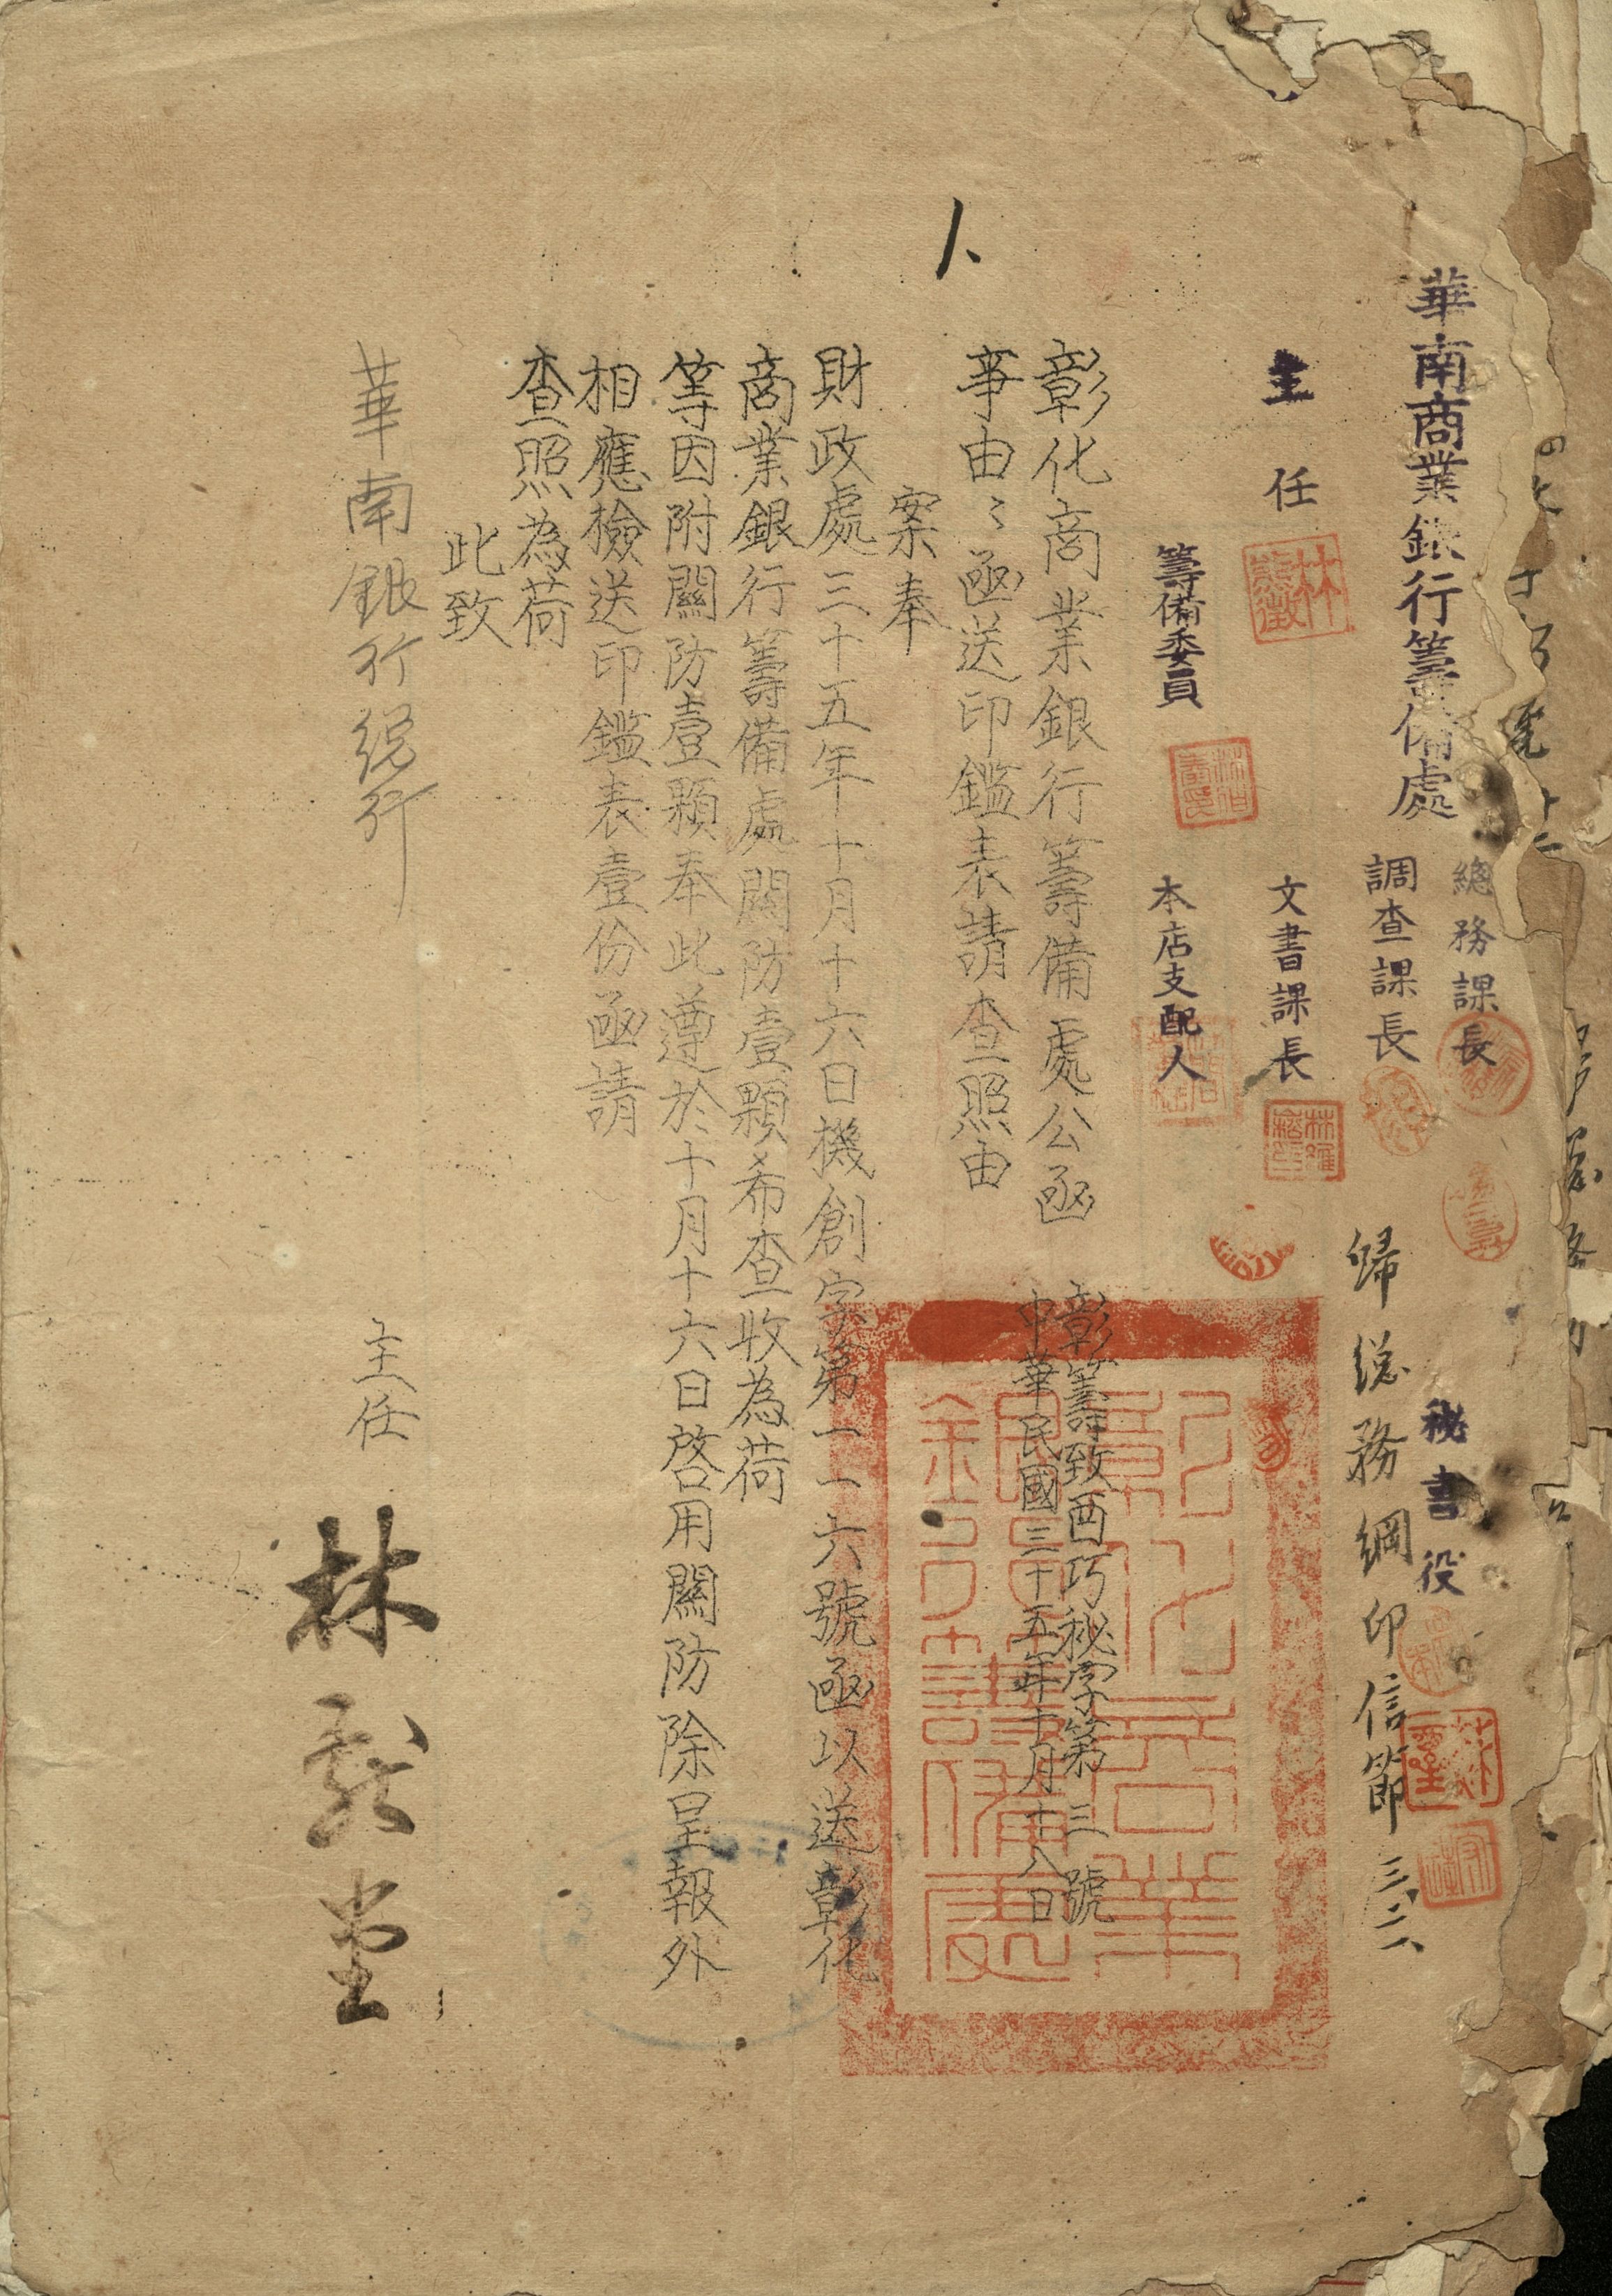 華南商業銀行籌備處
總務課長
調查課長
秘書役
歸總務綱印信節
主任
文書課長
籌備委員
本店支配人
彰化商業銀行籌備處公函
彰籌致酉巧秘字第三號
中華民國三十五年十月十八日
事由:函送印鑑表請查照由
案奉
財政處三十五年十月十六日機創字第一一六號函以送彰化
商業銀行籌備處關防壹顆希查收為荷
等因附關防壹顆奉此遵於十月十六日啓用關防除呈報外
相應檢送印鑑表壹份函請
查照為荷
此致
華南銀行總行
主任 林獻堂
彰化商業
銀行籌備處